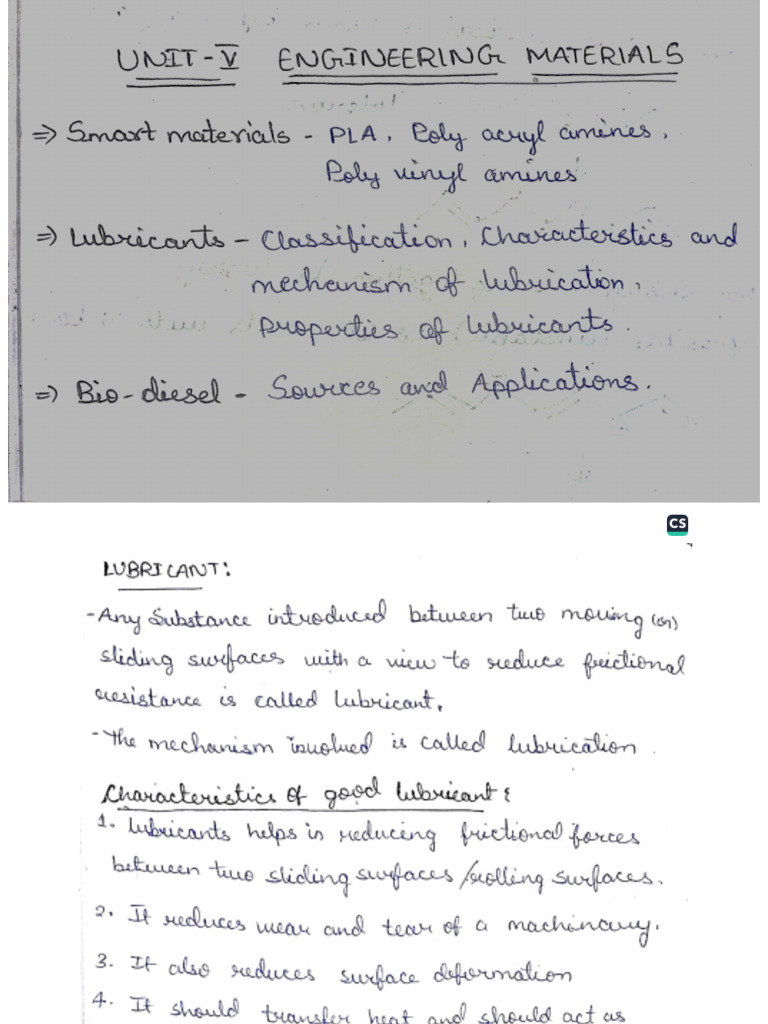 UNIT-V ENGINEERING MATERIALS
=> Smart materials - PLA, Poly acryl amines,
Poly vinyl amines
=> Lubricants - Classification, Characteristics and
mechanism of lubrication,
Properties of lubricants.
=> Bio-diesel - Sources and Applications.
CS
LUBRICANT:
- Any Substance introduced between two moving (or)
sliding surfaces with a view to reduce frictional
resistance is called lubricant.
- The mechanism involved is called lubrication.
Characteristics of good lubricant:
1. lubricants helps in reducing frictional forces
between two sliding surfaces/rolling surfaces.
2. It reduces wear and tear of a machinary.
3. It also reduces surface deformation
4. It should transfer heat and should act as